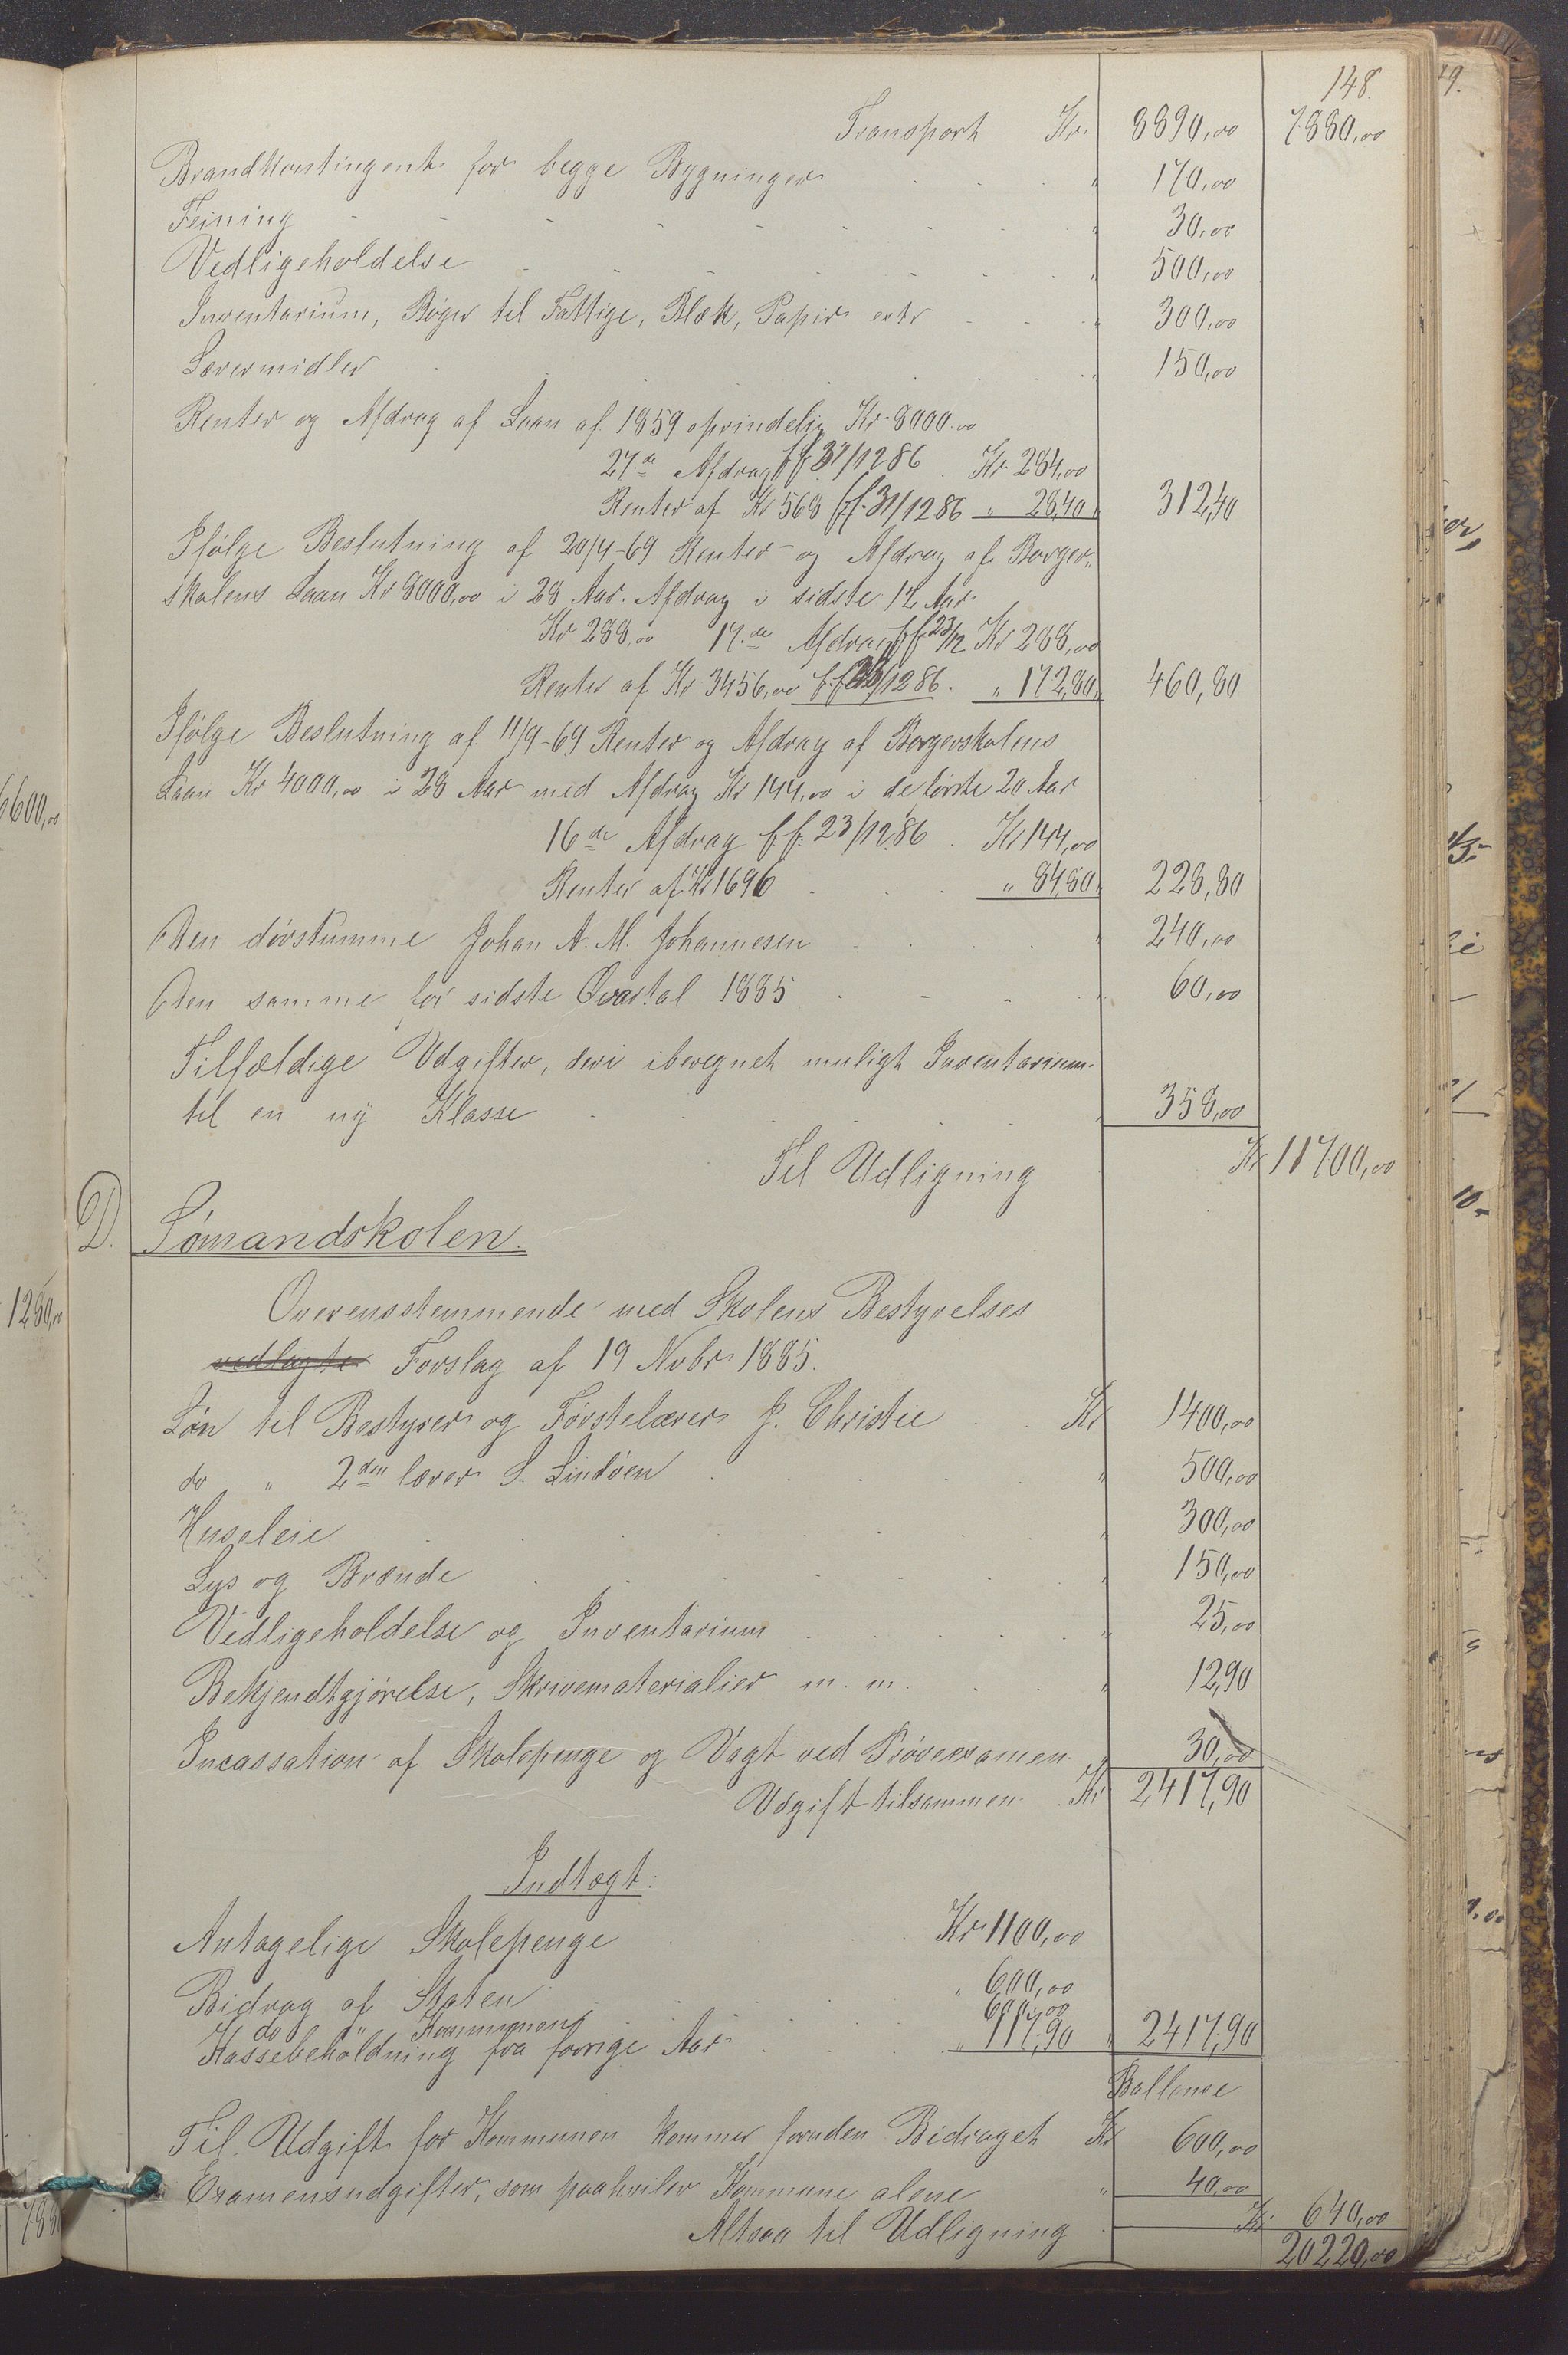 148.
Transport Kr. 8890,00 7880,00
Brandkontingent for begge Bygninger " 170,00
Feining " 30,00
Vedligeholdelse " 500,00
Inventarium, Bøger til Fattige, Blæk, Papir " 300,00
Læremidler " 150,00
Renter og Afdrag af Laan af 1859 oprindelig Kr 8000.00
27.de Afdrag ff 31/12 86 . Kr 284,00
Renter af Kr 568 ff. 31/12 86 " 28,40 " 312,40
Ifølge Beslutning af 20/4-69 Renter og Afdrag af Borger„
skolens Laan Kr 8000,00 i 28 Aar. Afdrag i sidste 12 Aar
Kr 288,00 17.de Afdrag ff 23/12 Kr 288,00
Renter af Kr 3456,00 ff 23/12 86. " 172,80 " 460,80
Ifølge Beslutning af 11/9-69 Renter og Afdrag af Borgerskolens
Laan Kr 4000,00 i 28 Aar med Afdrag Kr 144,00 i de første 20 Aar
16 de Afdrag ff. 23/12 86 . Kr 144,00
Renter af Kr 1696 " 84,80 " 228,80
Den døvstumme Johan A. M. Johannesen " 240,00
Den samme for sidste Qvartal 1885 " 60,00
Tilfældige Udgifter, deri iberegnet muligt Inventarium
til en ny Klasse " 358,00
Til Udligning Kr 11700,00
D. Sømandskolen.
Overensstemmende med Skolens Bestyrelses
vedlagte Forslag af 19 Novbr 1885.
Løn til Bestyrer og Førstelærer J. Christie Kr 1400,00
do " 2den lærer S. Lindøen " 500,00
Husleie " 300,00
Lys og Brænde " 150,00
Vedligeholdelse og Inventarium " 25,00
Bekjendtgjørelse, Skrivematerialier m. m. " 12,90
Incassation af Skolepenge og Vagt ved Prøveexamen " 30,00
Udgift tilsammen Kr 2417,90
Indtægt:
Antagelige Skolepenge Kr 1100,00
Bidrag af Staten " 600,00
do " Kommunen 600,00
Kassebeholdning fra forrige Aar " 117,90 " 2417,90
Ballance
Til Udgift for Kommunen kommer foruden Bidraget Kr 600,00
Examensudgifter, som paahviler Kommune alene " 40,00
Altsaa til Udligning Kr 640,00
20220,00
6600,00
1280,00